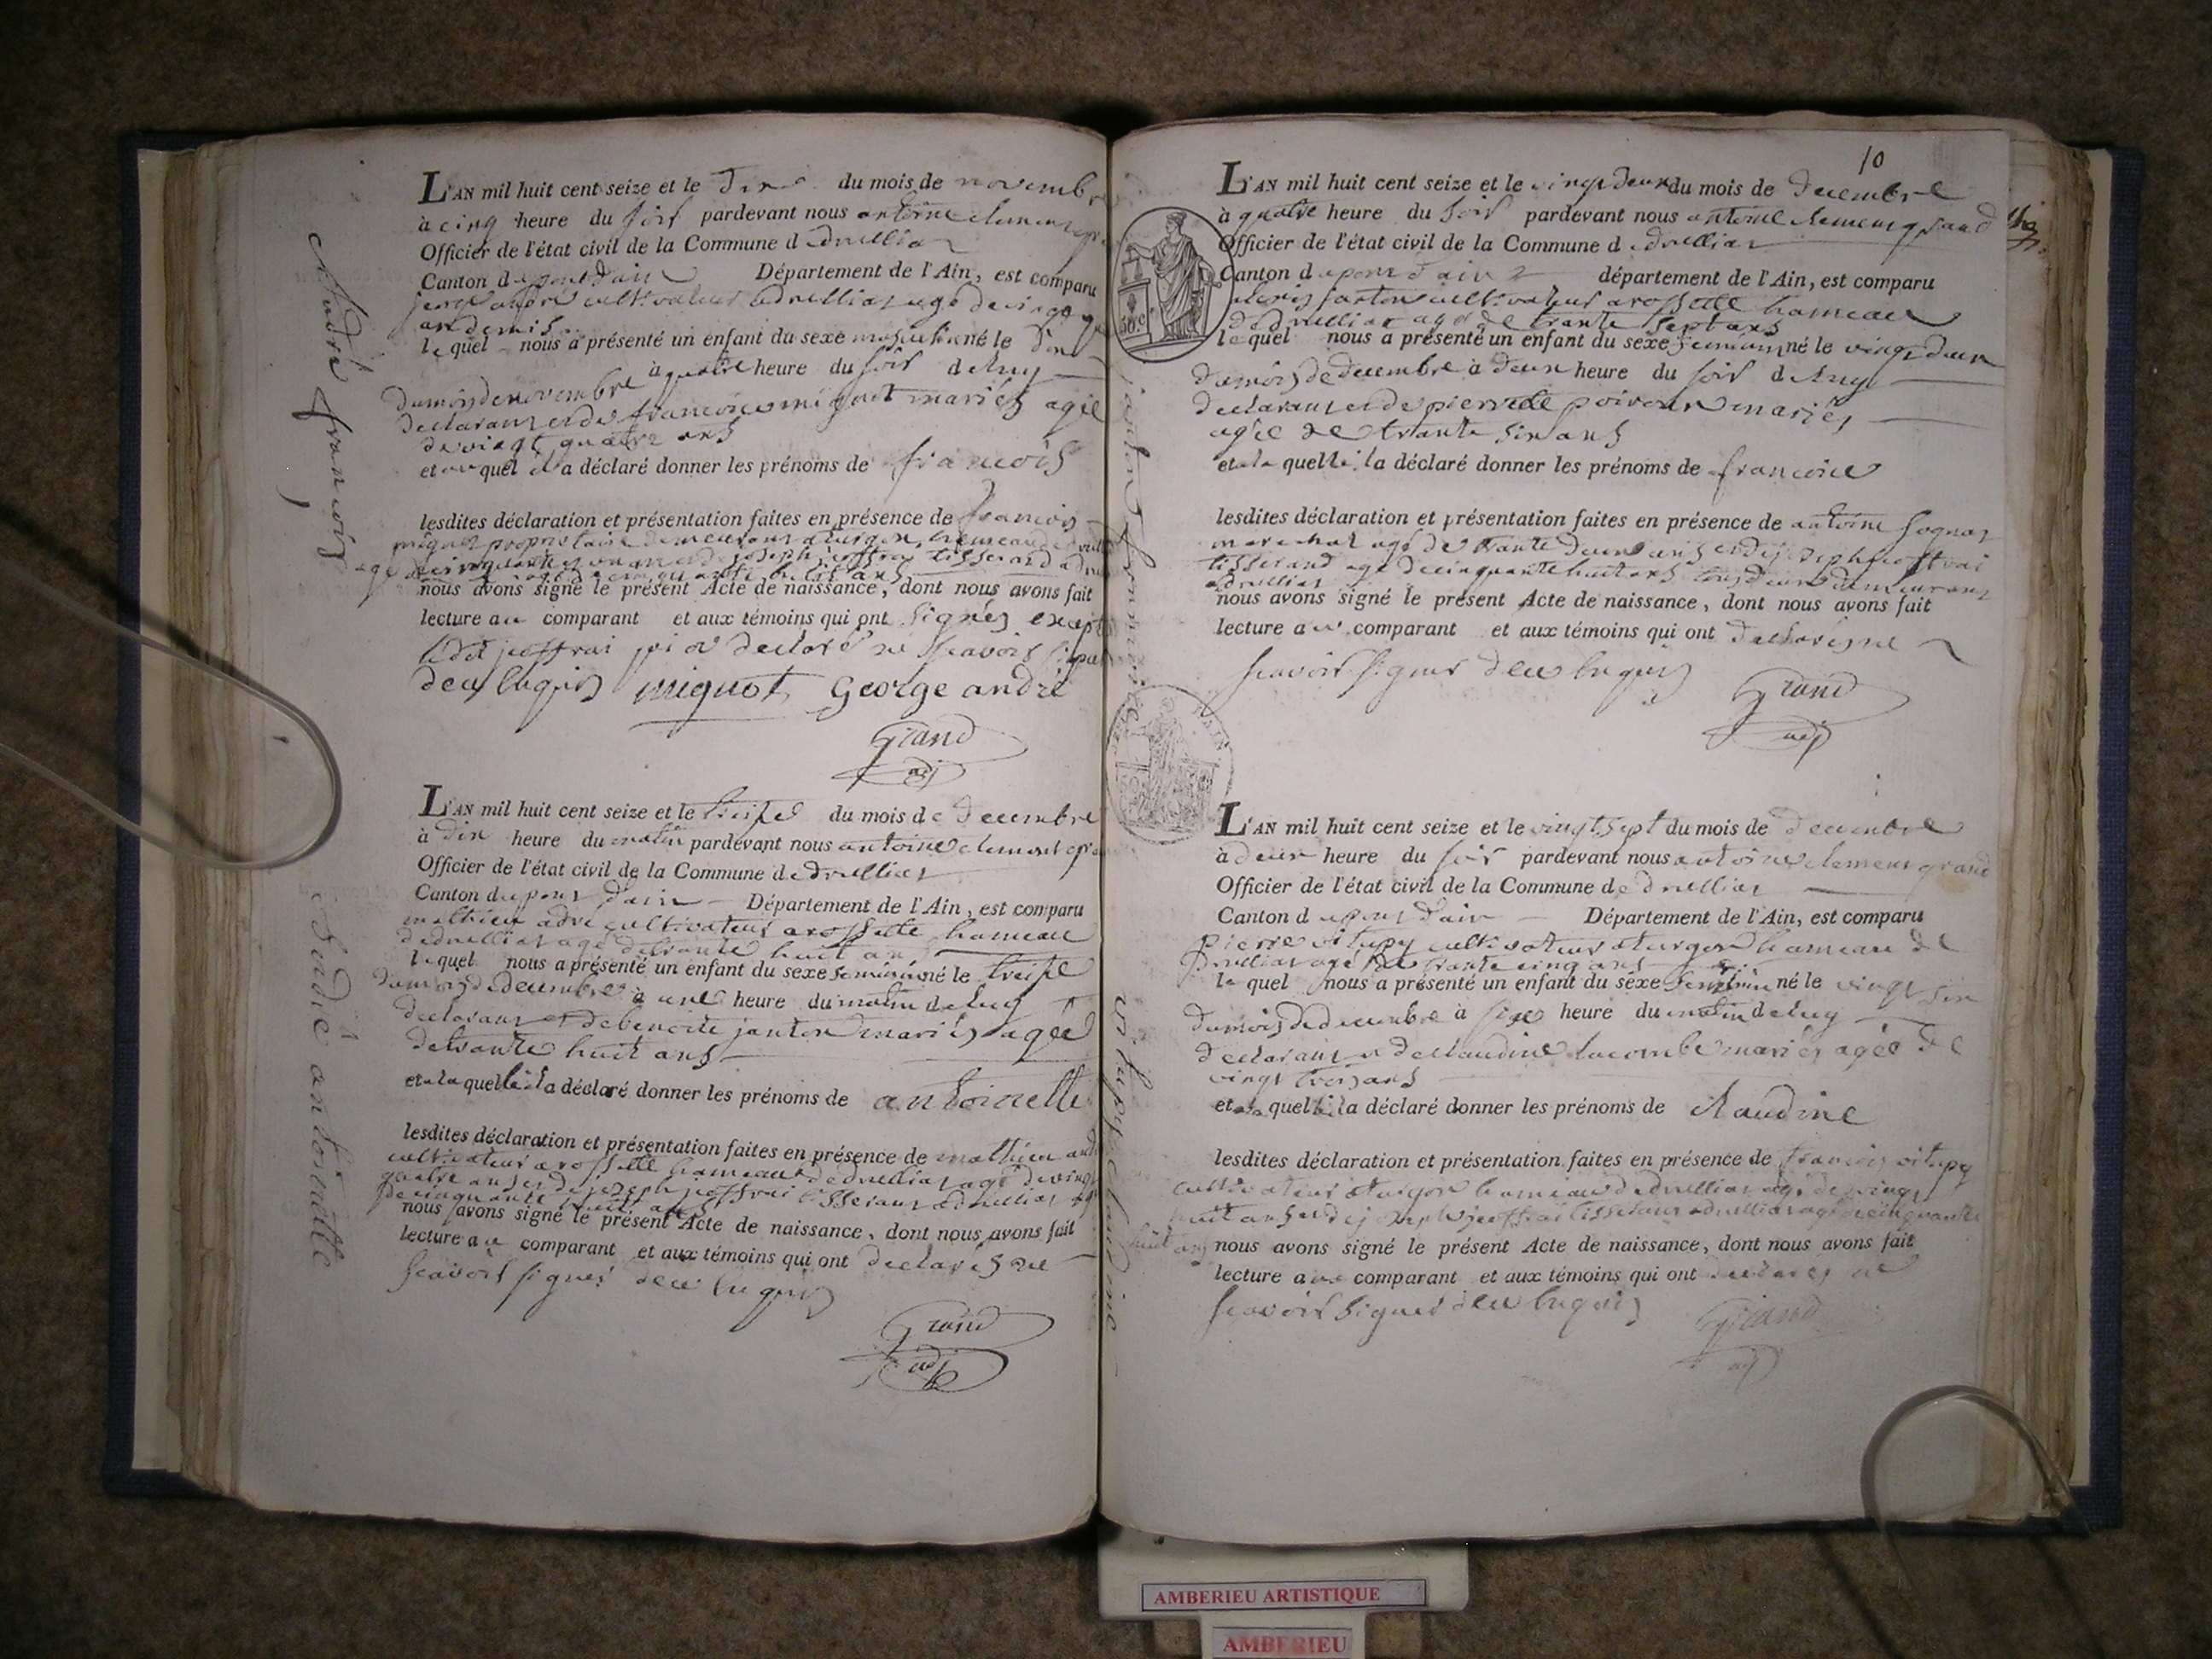 andré françois
L'AN mil huit cent seize et le dix du mois de novembre
à cinq heure du soir pardevant nous antoine clemens
Officier de l'état civil de la Commune d druillia
Canton du pont dain Département de l'Ain, est comparu
george andré cultivateur a druillia agé de vingt
an demis
le quel nous a présenté un enfant du sexe masculin né le dix
du mois de novembre à quatre heure du soir de luy
declarant et de francoise miguot mariés agée
de vingt quatre ans
et au quel il a déclaré donner les prénoms de françois
lesdites déclaration et présentation faites en présence de francois
miguot propriétaire demeurant a turgon hameau de
agé de cinquante ans et de joseph joffrai tisserand a
agé de cinquante huit ans
nous avons signé le présent Acte de naissance, dont nous avons fait
lecture au comparant et aux témoins qui ont signés except
ledit joffrai qui a declaré ne scavoir
de ce enquis miguot George andré
Grand
adj
andré antoinette
L'AN mil huit cent seize et le treise du mois de decembre
à dix heure du matin pardevant nous antoine clement
Officier de l'état civil de la Commune de druillia
Canton du pont dain Département de l'Ain, est comparu
mathieu adré cultivateur a rossette hameau
de druillia agé de trante huit ans
le quel nous a présenté un enfant du sexe feminin né le treise
du mois de decembre à une heure du matin de luy
declarant et de benoite janton mariés agée
de trante huit ans
et a la quelle il a déclaré donner les prénoms de antoinette
lesdites déclaration et présentation faites en présence de mathieu
cultivateur a rossette hameau de druillia agé de vingt
quatre ans et de joseph joffrai tisserant a druillia agé
de cinquante huit ans
nous avons signé le présent Acte de naissance, dont nous avons fait
lecture au comparant et aux témoins qui ont declarés ne
scavoir signer de ce enquis
Grand
adj
10
janton francoise
L'AN mil huit cent seize et le vingt deux du mois de decembre
à quatre heure du soir pardevant nous antoine clemens grand
Officier de l'état civil de la Commune d druillia
Canton du pont dain département de l'Ain, est comparu
alexis janton cultivateur a rossette hameau
de druillia agé de trante sept ans
le quel nous a présenté un enfant du sexe feminin né le vingt deux
du mois de decembre à deux heure du soir de luy
declarant et de pierrette mariés
agée de trante six ans
et a la quelle il a déclaré donner les prénoms de francoise
lesdites déclaration et présentation faites en présence de antoine
marechal agé de trante deux ans et de joseph joffrai
tisserand agé de cinquante huit ans tous deux demeurant
a druillia
nous avons signé le présent Acte de naissance, dont nous avons fait
lecture au comparant et aux témoins qui ont declares ne
scavoir signer de ce enquis
Grand
adj
vitupy claudine
L'AN mil huit cent seize et le vingt sept du mois de decembre
à deux heure du soir pardevant nous antoine clemens grand
Officier de l'état civil de la Commune de druillia
Canton du pont dain Département de l'Ain, est comparu
pierre vitupy cultivateur a turgon hameau de
druillia agé de trante cinq ans
le quel nous a présenté un enfant du sexe feminin né le vingt six
du mois de decembre à six heure du matin de luy
declarant et de claudine lacombe mariés agée de
vingt trois ans
et a la quelle il a déclaré donner les prénoms de claudine
lesdites déclaration et présentation faites en présence de francois vitupy
cultivateur a turgon hameau de druillia agé de vingt
huit ans et de joseph joffrai tisserant a druillia agé de cinquante
huit ans
nous avons signé le présent Acte de naissance, dont nous avons fait
lecture au comparant et aux témoins qui ont declares ne
scavoir signer de ce enquis
Grand
adj
AMBERIEU ARTISTIQUE
AMBERIEU